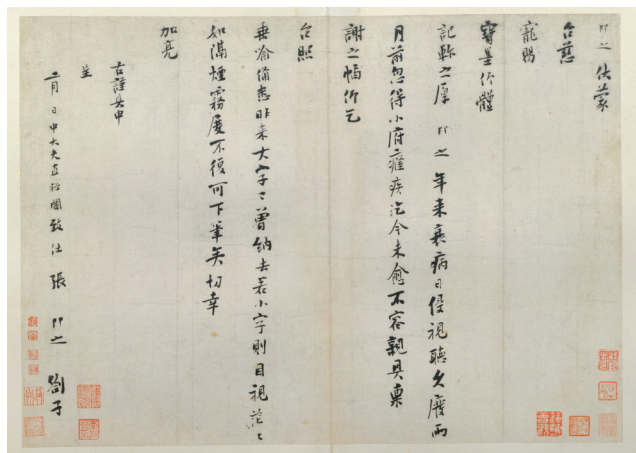 即之伏蒙
台慈
寵賜
寶墨仰體
記軫之厚即之年來衰病日侵視聽久廢兩
月前忽得小府癃疾迄今未愈不容親具稟
謝之幅仰乞
台照
垂喻備悉昨來大字已曾納去若小字則目視茫茫
如隔煙霧屢不復可下筆矣切幸
加亮
右謹具申
呈
二月 日中大夫直秘閣致仕張 即之 劄子